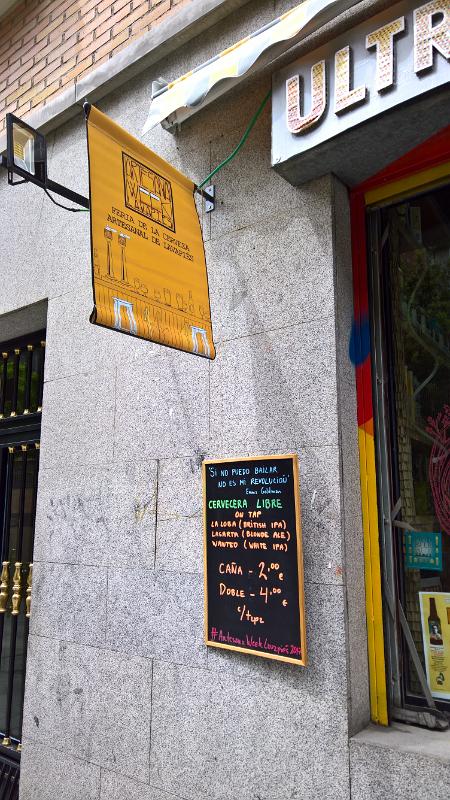 ULTR
ARTESANA
WEEK
LAVAPIÉS
FERIA DE LA CERVEZA
ARTESANAL DE LAVAPIÉS
"SI NO PUEDO BAILAR
NO ES MI REVOLUCIÓN"
Emma Goldman
CERVECERA LIBRE
ON TAP
LA LOBA (BRITISH IPA)
LAGARTA (BLONDE ALE)
WANTED (WHITE IPA)
CAÑA - 2,00 €
DOBLE - 4,00 €
c/tapa
#Artesana Week Lavapiés 2017